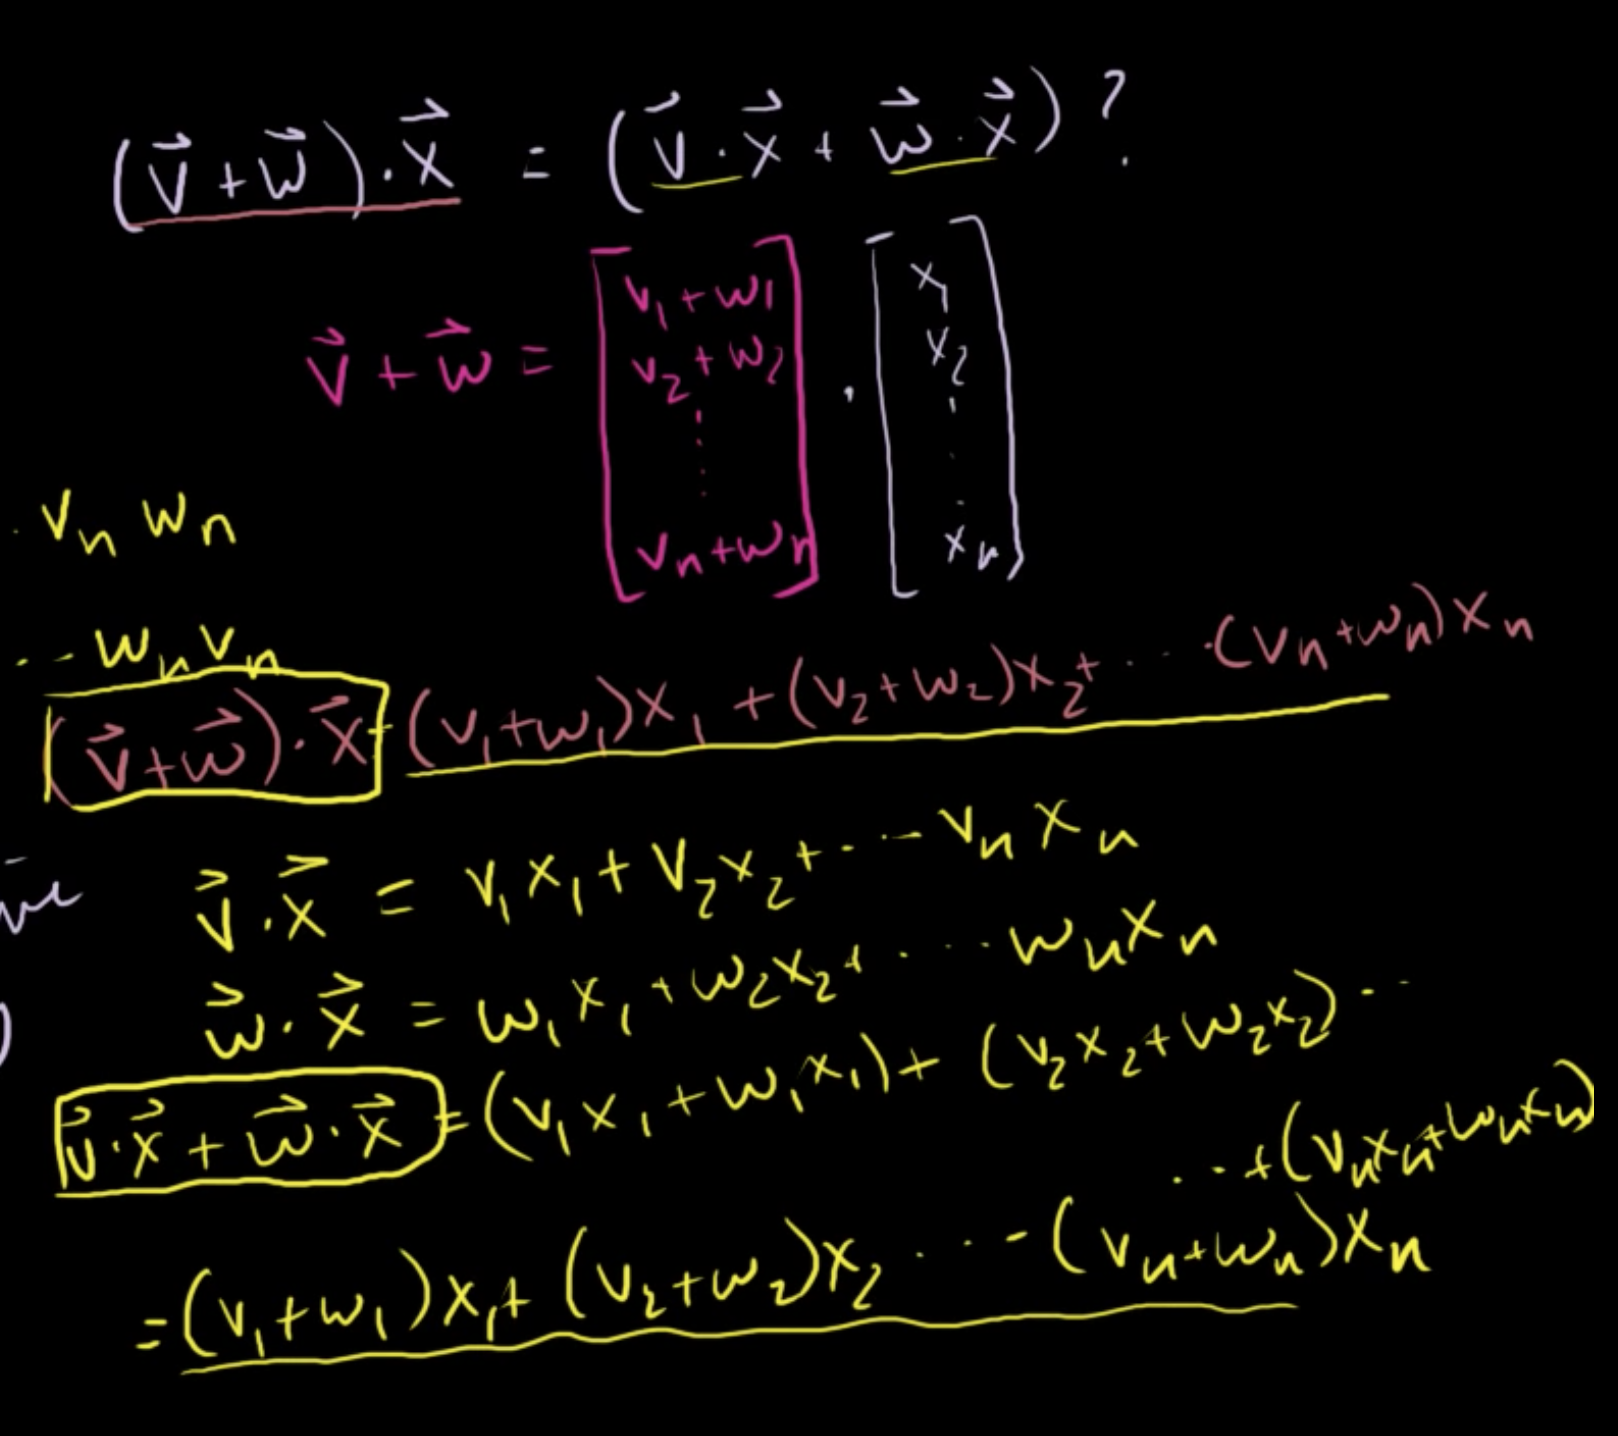 (v⃗ + w⃗) · x⃗ = (v⃗ · x⃗ + w⃗ · x⃗) ?
v⃗ + w⃗ = [v₁ + w₁ v₂ + w₂ ⋮ vₙ + wₙ] · [x₁ x₂ ⋮ xₙ]
· vₙ wₙ
··- wₙ vₙ
(v⃗ + w⃗) · x⃗ = (v₁ + w₁)x₁ + (v₂ + w₂)x₂ + ··· (vₙ + wₙ)xₙ
v⃗ · x⃗ = v₁ x₁ + v₂ x₂ + ··· vₙ xₙ
w⃗ · x⃗ = w₁ x₁ + w₂ x₂ + ··· wₙ xₙ
v⃗ · x⃗ + w⃗ · x⃗ = (v₁ x₁ + w₁ x₁) + (v₂ x₂ + w₂ x₂) ··
··· + (vₙ xₙ + wₙ xₙ)
= (v₁ + w₁)x₁ + (v₂ + w₂)x₂ ···- (vₙ + wₙ)xₙ